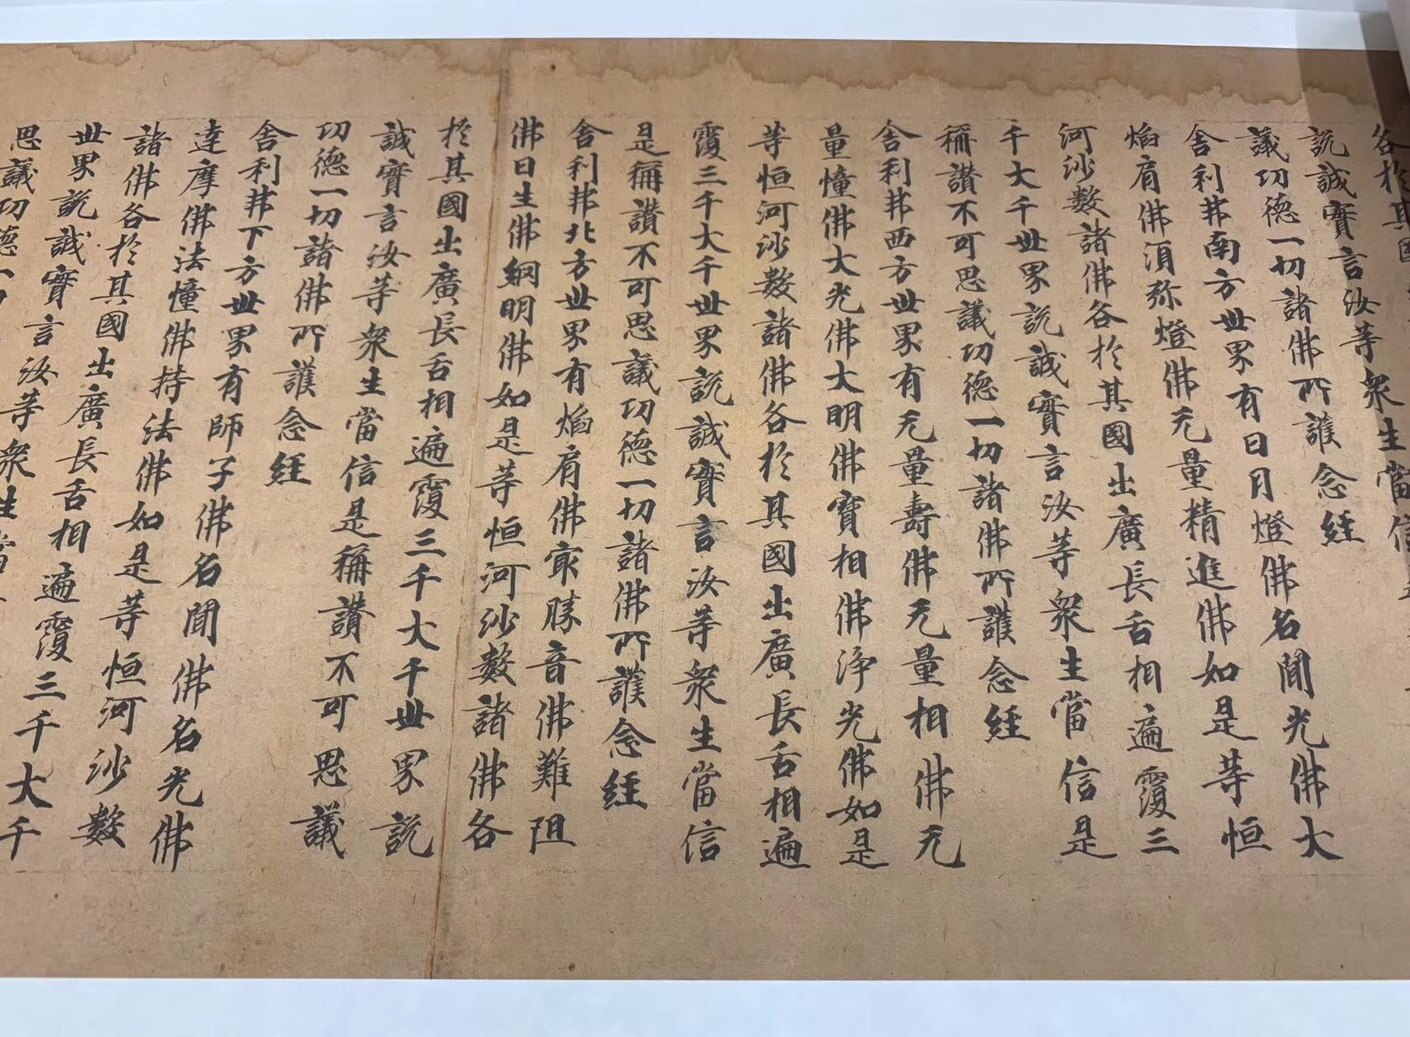 各於其國
說誠實言汝等衆生當信
議功德一切諸佛所護念經
舍利弗南方世界有日月燈佛名聞光佛大
焰肩佛須弥燈佛无量精進佛如是等恒
河沙數諸佛各於其國出廣長舌相遍覆三
千大千世界說誠實言汝等衆生當信是
稱讚不可思議功德一切諸佛所護念經
舍利弗西方世界有无量壽佛无量相佛无
量幢佛大光佛大明佛寶相佛淨光佛如是
等恒河沙數諸佛各於其國出廣長舌相遍
覆三千大千世界說誠實言汝等衆生當信
是稱讚不可思議功德一切諸佛所護念經
舍利弗北方世界有焰肩佛㝡勝音佛難阻
佛日生佛網明佛如是等恒河沙數諸佛各
於其國出廣長舌相遍覆三千大千世界說
誠實言汝等衆生當信是稱讚不可思議
功德一切諸佛所護念經
舍利弗下方世界有師子佛名聞佛名光佛
達摩佛法幢佛持法佛如是等恒河沙數
諸佛各於其國出廣長舌相遍覆三千大千
世界說誠實言汝等衆生當
思議功德一切